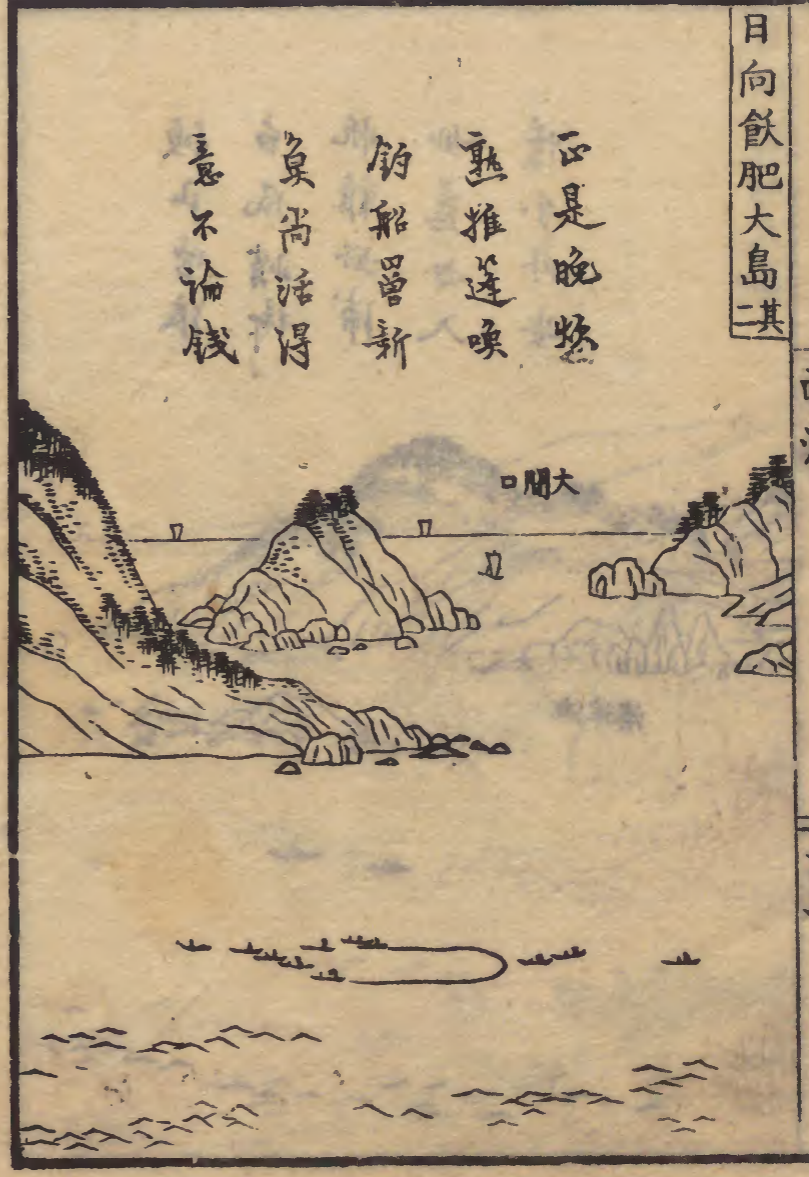 日向飫肥大島其二
正是晩炊
熟推篷喚
釣船罾新
魚尚活得
意不論錢
大間口